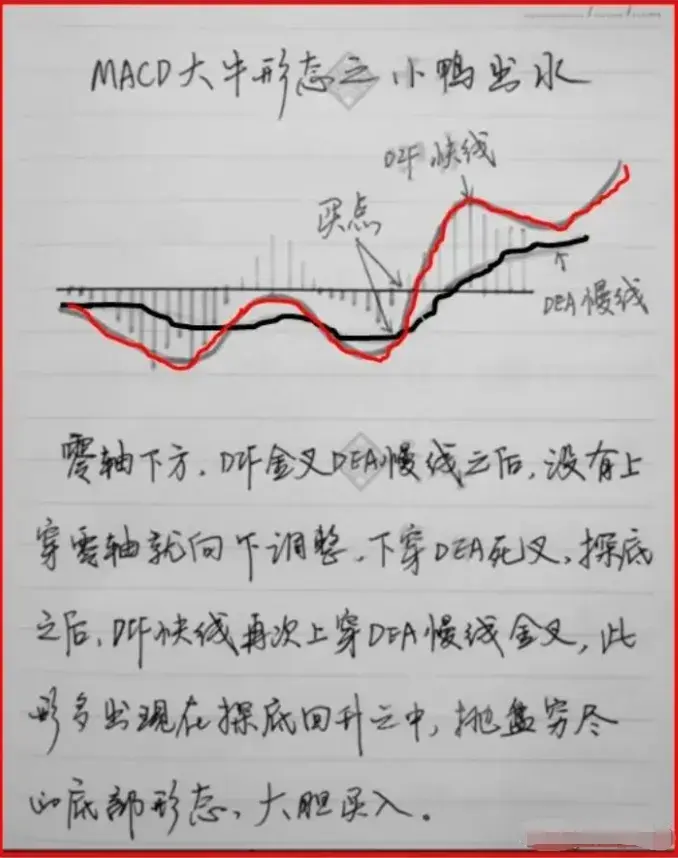 MACD大牛形态之小鸭出水
DIF快线
买点
DEA慢线
零轴下方，DIF金叉DEA慢线之后，没有上
穿零轴就向下调整，下穿DEA死叉，探底
之后，DIF快线再次上穿DEA慢线金叉，此
形多出现在探底回升之中，抛盘穷尽
的底部形态，大胆买入。